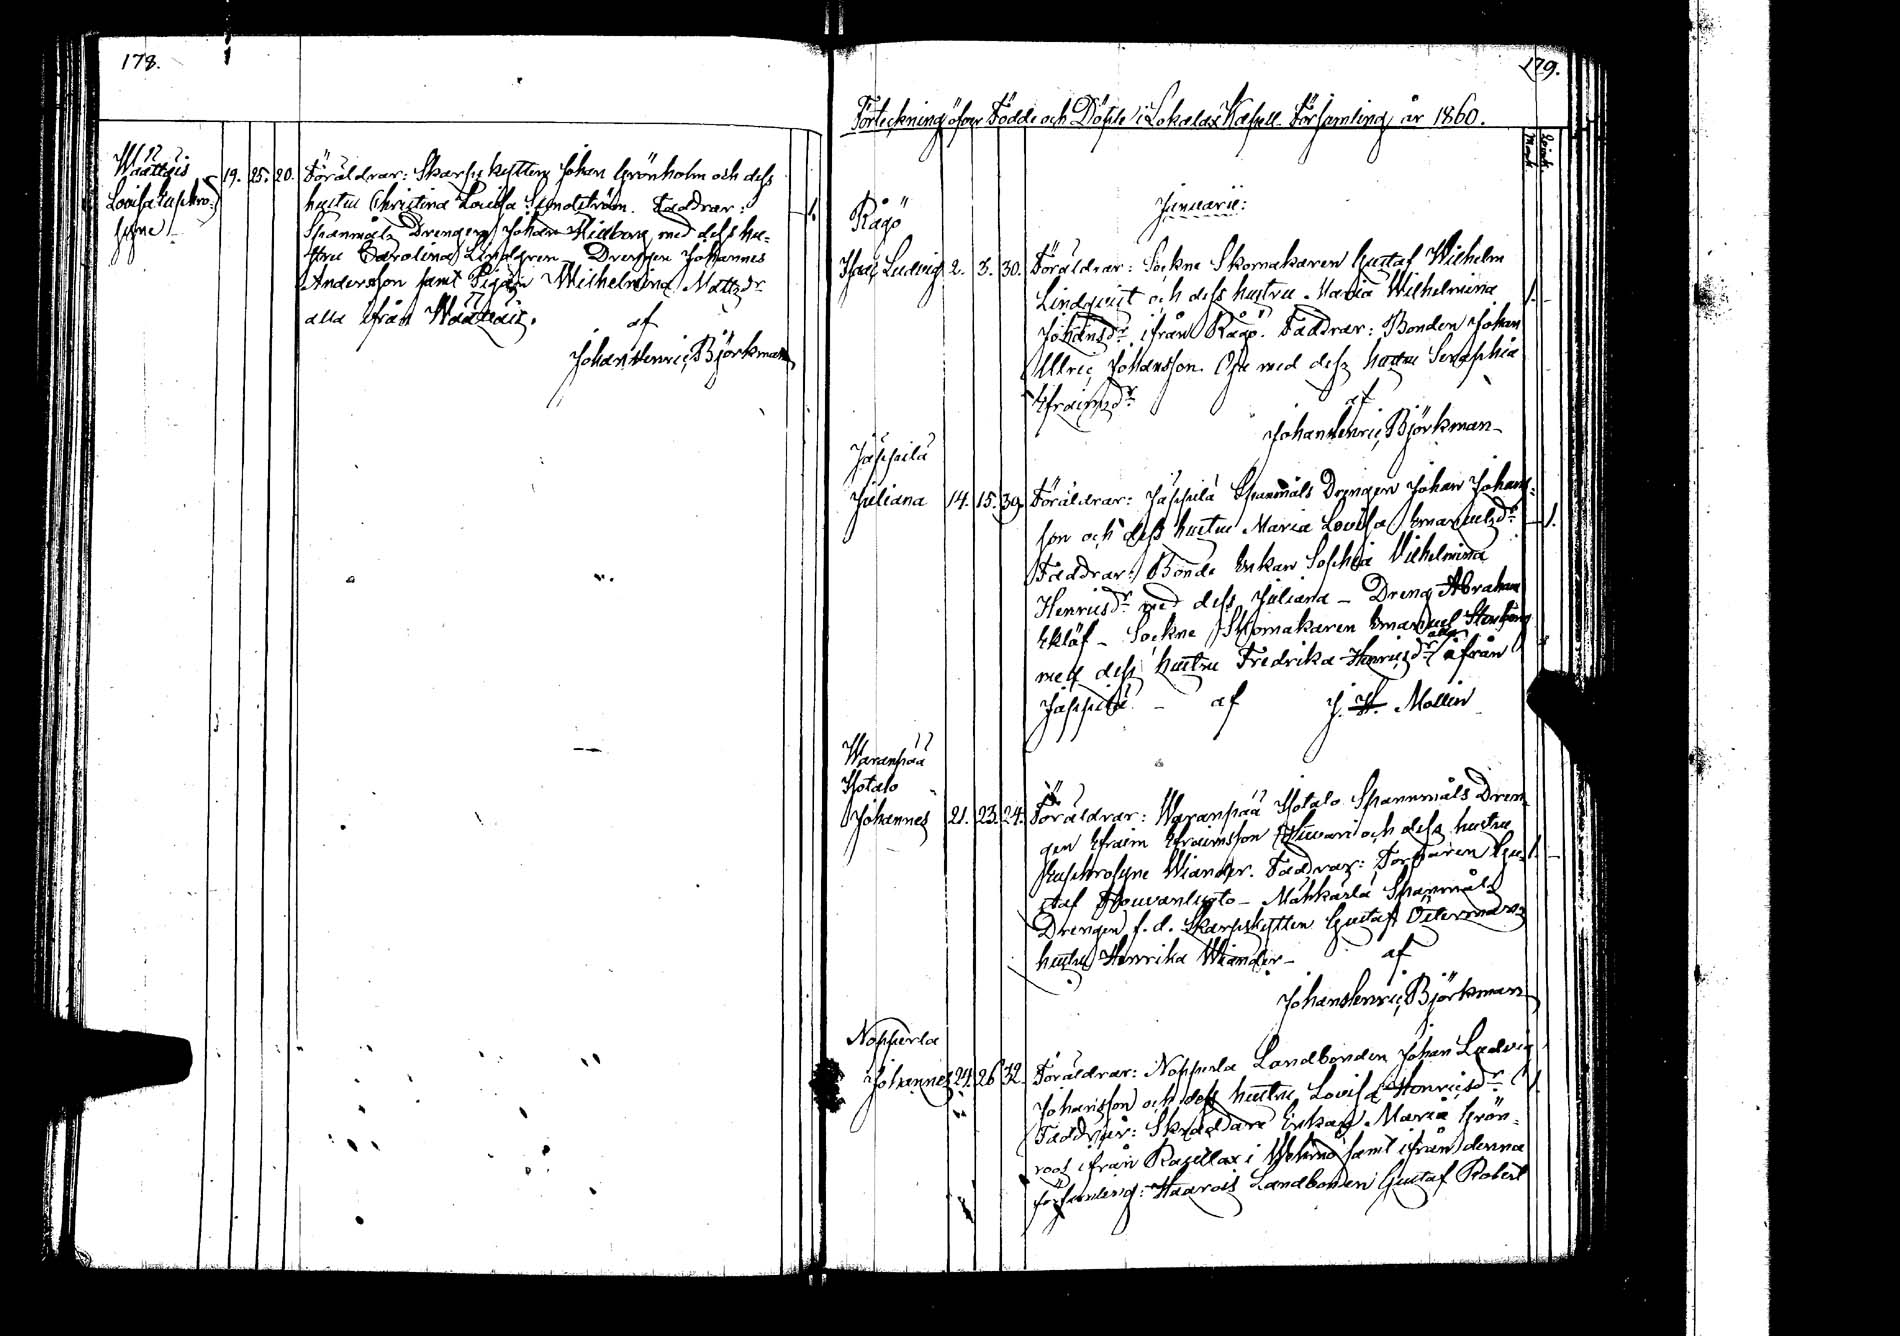 178.
Waattais
Lovisa Euphro-
syne
19. 25. 20. Föräldrar: Skarpskytten Johan Grönholm och dess
hustru Christina Lovisa Sundström. Faddrar:
Spanmåls Drengen Johan Widborg med dess hu-
stru Carolina Lindgren, Drengen Johannes
Andersson samt Pigan Wilhelmina Mattsdr
alla ifrån Waattais.
af
Johan Henric Björkman
1.
179.
Förteckning öfver Födde och Döpte i Lokalax Kapell Församling år 1860.
Januarii:
Rågö
Isaac Ludvig 2. 3. 30. Föräldrar: Sockne Skomakaren Gustaf Wilhelm
Lindqvist och dess hustru Maria Wilhelmina
Johansdr ifrån Rågö. Faddrar: Bonden Johan
Ulric Johansson med dess hustru Seraphia
Efraimsdr
af
Johan Henric Björkman
1. –
Jäppilä
Juliana 14. 15. 39. Föräldrar: Jäppilä Spanmåls Drengen Johan Johans-
son och dess hustru Maria Lovisa Emanuelsdr
Faddrar: Bonde Enkan Sophia Vilhelmina
Henricsdr med dess Juliana – Dreng Abraham
Eklöf – Sockne Skomakaren Emanuel
med dess hustru Fredrika Henricsdr alla ifrån
Jäppilä – af J. H. Mollin
– 1.
Waranpää
Hotalo
Johannes 21. 23. 24. Föräldrar: Waranpää Hotalo Spannmåls Dren-
gen Efraim Efraimsson och dess hustru
Euphrosyne Wiander. Faddrar: Torparen Gu-
staf – Mahkarla Spanmåls
Drengen f. d. Skarpskytten Gustaf Östermans
hustru Henrika Wiander –
af
Johan Henric Björkman
1. –
Nopperla
Johannes 24. 26. 32. Föräldrar: Nopperla Landbonden Johan Ludvig
Johansson och dess hustru Lovisa Henricsdr
Faddrar: Skräddare Enkan Maria Grön-
roos ifrån i Wehmo samt ifrån denna
församling: Haarois Landbonden Gustaf Robert
1.